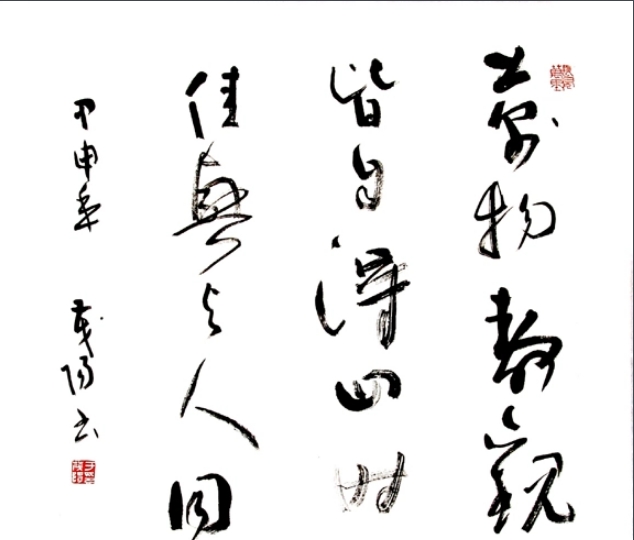 萬物靜觀
皆自得四時
佳興与人同
甲申年 茂陽书